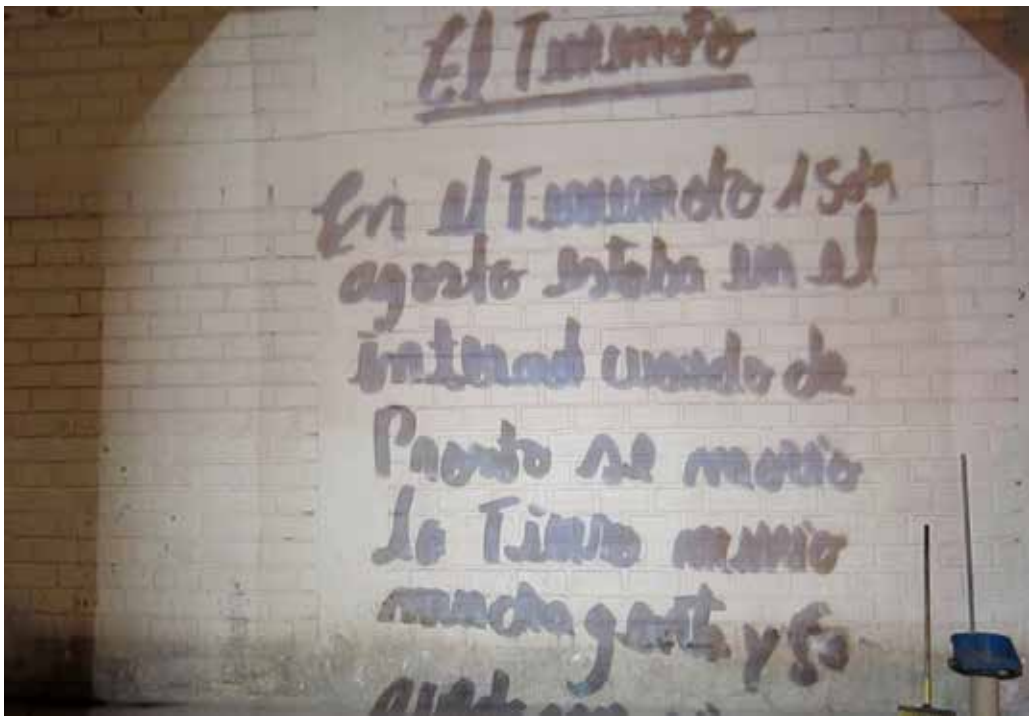 El Terremoto
En el Terremoto 15 de
agosto estaba en el
internad cuando de
Pronto se movio
la Tierra murio
mucha gente y yo